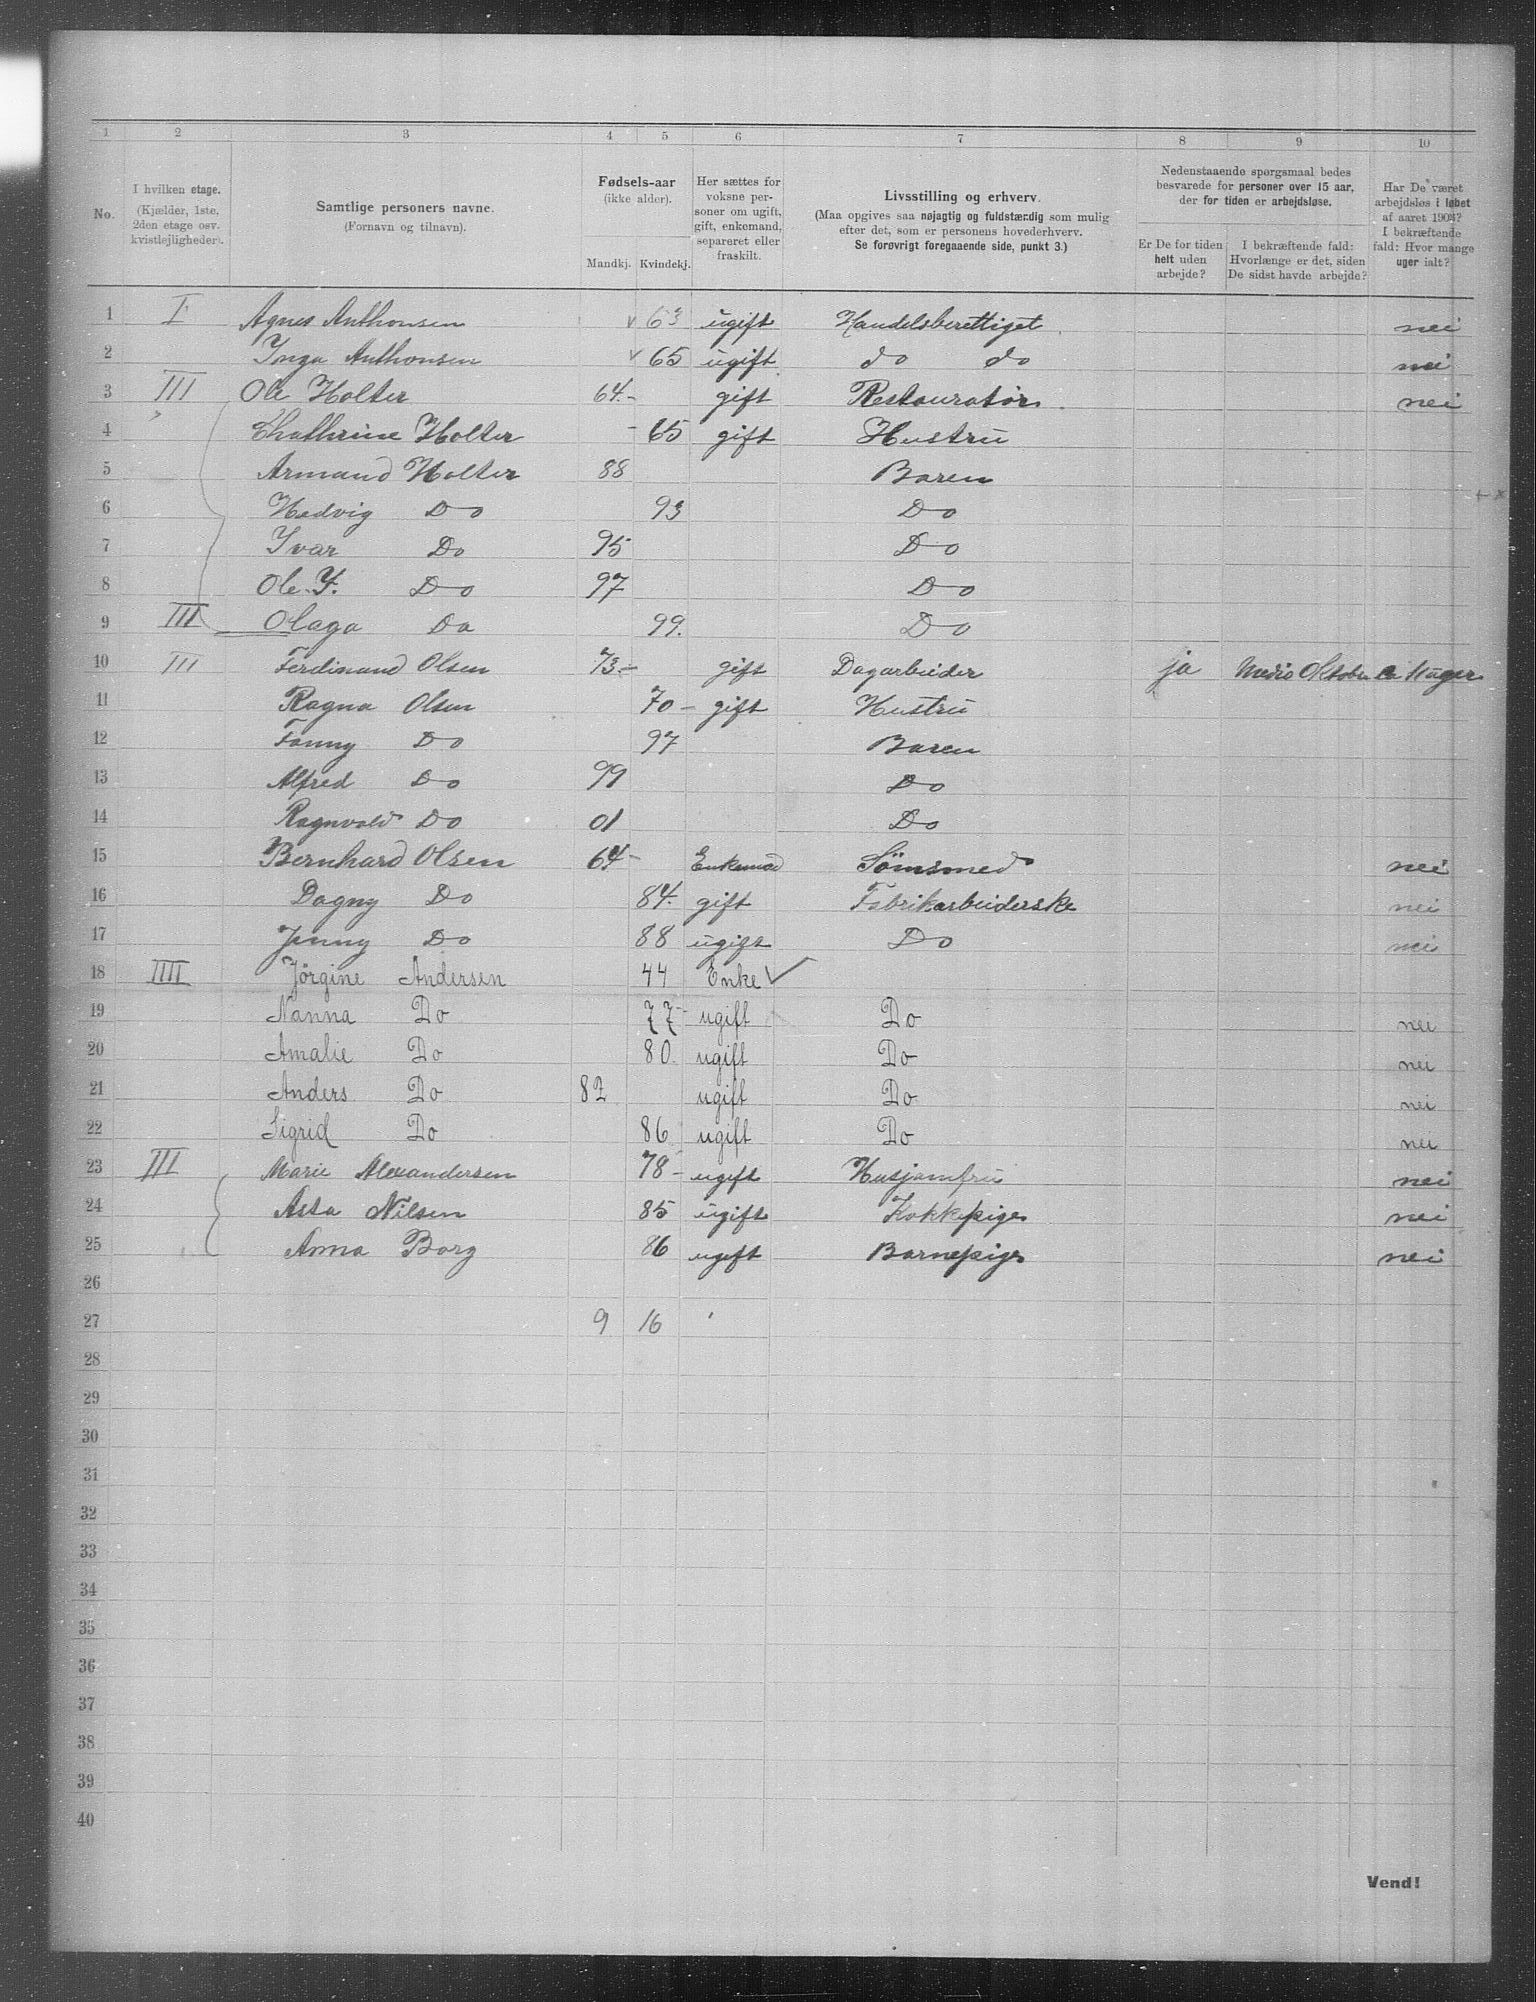 1 2 3 4 5 6 7 8 9 10
No.
I hvilken etage. (Kjælder, 1ste, 2den etage osv. kvistlejligheder).
Samtlige personers navne. (Fornavn og tilnavn).
Fødsels-aar (ikke alder). Mandkj. Kvindekj.
Her sættes for voksne personer om ugift, gift, enkemand, separeret eller fraskilt.
Livsstilling og erhverv.
(Maa opgives saa nøjagtig og fuldstændig som mulig efter det, som er personens hovederhverv. Se forøvrigt foregaaende side, punkt 3.)
Nedenstaaende spørgsmaal bedes besvarede for personer over 15 aar, der for tiden er arbejdsløse.
Er De for tiden helt uden arbejde?
I bekræftende fald: Hvorlænge er det, siden De sidst havde arbejde?
Har De været arbejdsløs i løbet af aaret 1903? I bekræftende fald: Hvor mange uger ialt?
1 I Agnes Anthonsen v 63 ugift Handelsberettiget nei
2 Inga Anthonsen v 65 ugift do do nei
3 III Ole Holter 64.- gift Restauratør. nei
4 Chathrine Holter - 65 gift Hustru
5 Armand Holter 88 Baren
6 Hedvig Do 93 Do
7 Ivar Do 95 Do
8 Ole. F. Do 97 Do
9 III Olaga Do 99. Do
10 III Ferdinand Olsen 73- gift Dagarbeider ja Medio Oktober 11 uger
11 Ragna Olsen 70 - gift Hustru
12 Fanny Do 97 Baren
13 Alfred Do 99 Do
14 Ragnvald Do 01 Do
15 Bernhard Olsen 64- Enkemad Sömsmed nei
16 Dagny Do 84. gift Fabrikarbeiderske nei
17 Jenny Do 88 ugift Do nei
18 IIII Jörgine Andersen 44 Enke ✓
19 Nanna Do 77- ugift Do nei
20 Amalie Do 80. ugift Do nei
21 Anders Do 82 ugift Do nei
22 Sigrid Do 86 ugift Do nei
23 III Marie Alexandersen 78- ugift Husjomfru nei
24 Asta Nilsen 85 ugift Kokkepige nei
25 Anna Borg 86 ugift Barnepige nei
26
27 9 16
28
29
30
31
32
33
34
35
36
37
38
39
40
Vend!